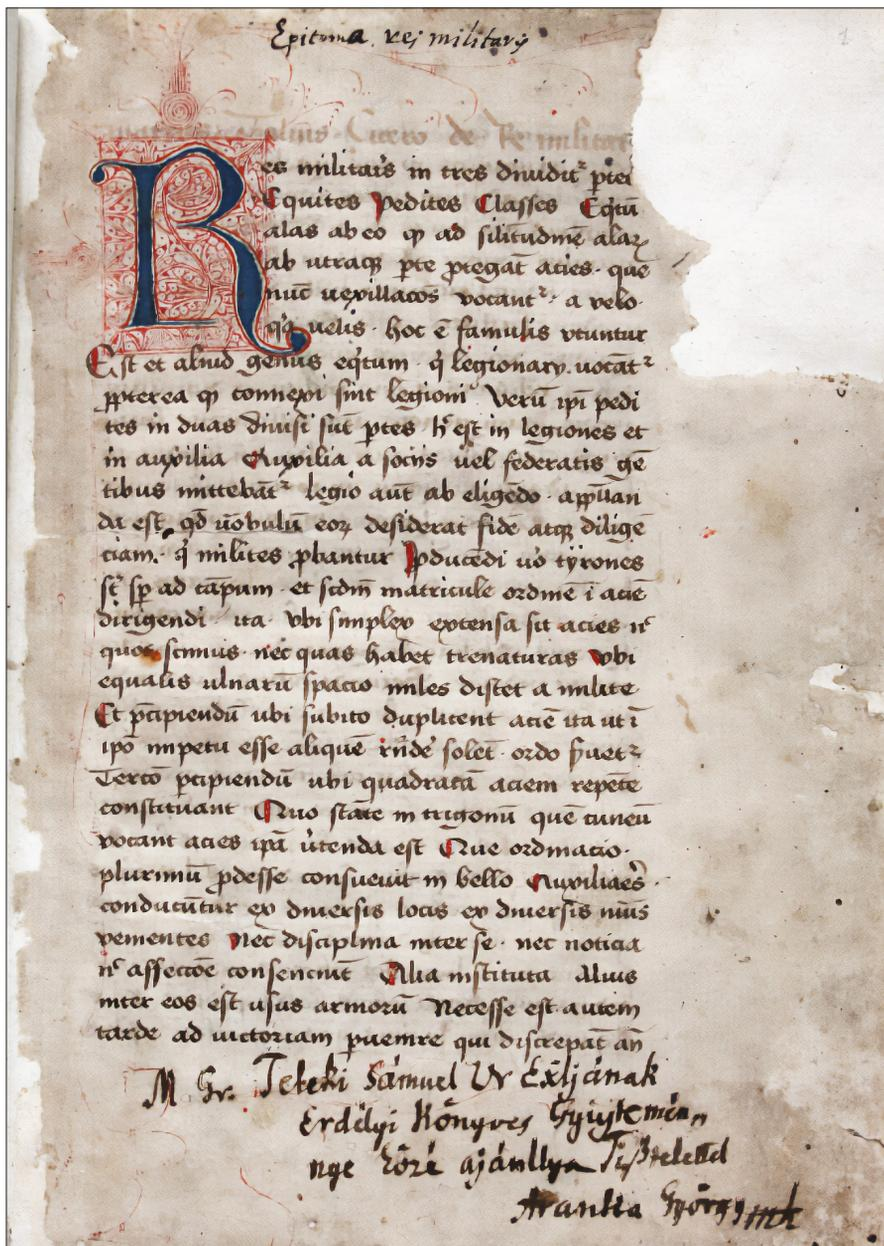 Epitoma rej militarẏ
Marcus Tulius Cicero de Re militari
Res militaris in tres dividitᷣ ꝑtes
Equites Pedites Classes Eqͥtū
alas ab eo ꝙ ad silitudinē alaꝝ
ab utraqꝫ ꝑte ꝓtegāt acies· que
nūc uexillacōs vocantᷣ· a velo·
uelis· hoc ē famulis vtuntur
Est et aliud genus eqͥtum· qͥ legionarÿ· uocātᷣ
ꝓpterea ꝙ connexi sint legioni Verū ip̄i pedi
tes in duas diuisi sūt ꝑtes h̄ est in legiones et
in auxilia Auxilia a socijs uel federatis gē
tibus mittebātᷣ legio aūt ab eligēdo· appellan
da est· desiderat fidē atqꝫ diligē
ciam· qͥ milites ꝓbantur Ꝓducēdi uͦo tÿrones
st̄ sꝑ ad cāpum· et scdm̄ matricule ordinē ī aciē
dirigendi· ita· vbi simplex extensa sit acies nͨ
quos sinuis· nec quas habet trenaturas vbi
equalis ulnarū spacio miles distet a milite
Et p̄cipiendū ubi subito duplicent aciē ita ut ī
ip̄o impetu esse aliquē solēt· ordo ẜuetᷣ
Tercō p̄cipiendū ubi quadratā aciem repēte
constituant Quo in trigonū quē cuneū
vocant acies ip̄a ūtenda est Que ordinacio·
plurimū ꝓdesse consueuit in bello Auxiliaēs·
conducūtur ex diuersis locis ex diuersis
venientes Nec disciplina inter se· nec noticia
nͨ affeccōe consenciūt Alia instituta Alius
inter eos est usus armorū Necesse est autem
tarde ad uictoriam ꝑuenire qui discrepāt an̄
M Gr. Teleki Sámuel Ur Exljának
Erdélyi Könyves Gyűjtemén,,
nye közé ajánllya
Aranka György mk